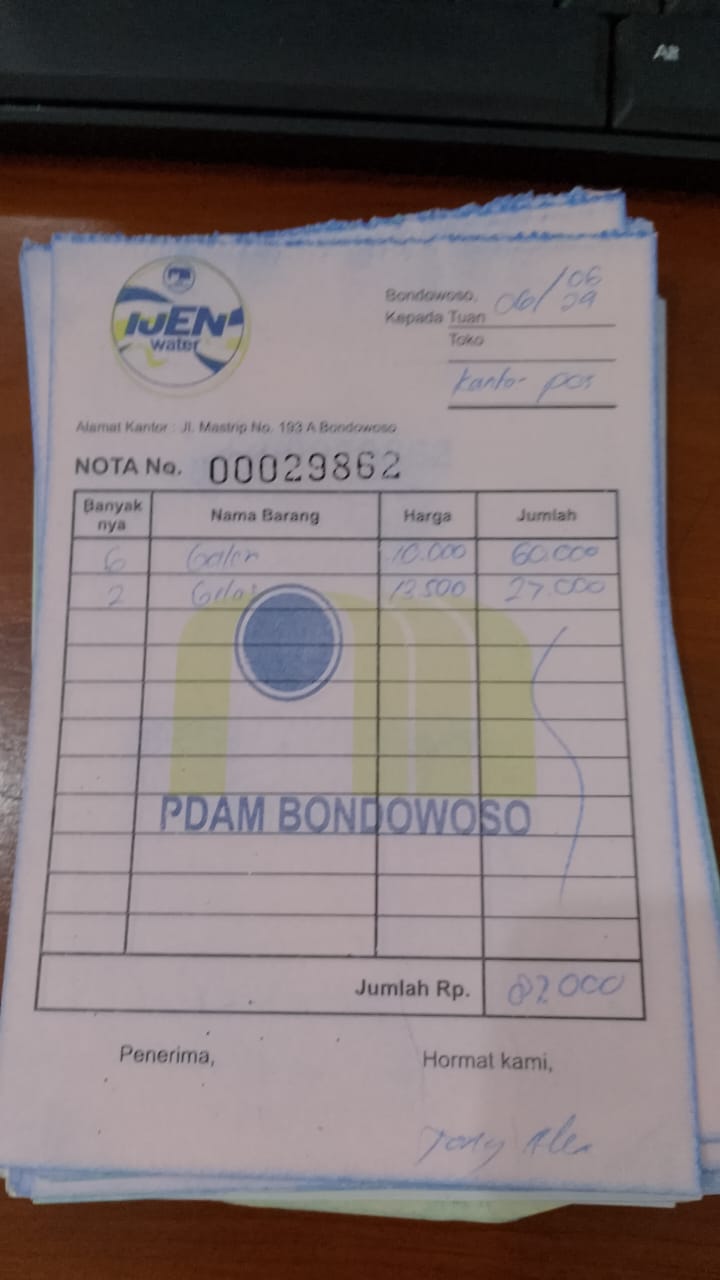 Alt
IJEN
water
Bondowoso, 06/06
09
Kepada Tuan
Toko
Kantor pos
Alamat Kantor : Jl. Mastrip No. 193 A Bondowoso
NOTA No. 00029862
Banyak nya Nama Barang Harga Jumlah
6 Galon 10.000 60.000
2 13.500 27.000
PDAM BONDOWOSO
Jumlah Rp. 82000
Penerima, Hormat kami,